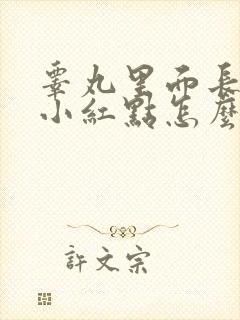 睾丸里面长
小紅點怎麼
許文宗